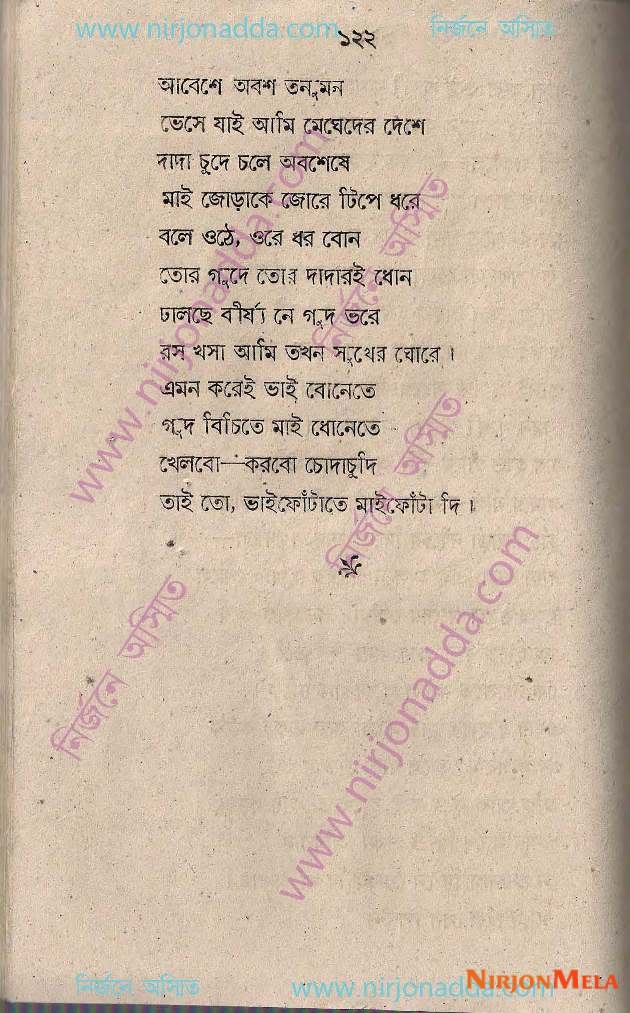 www.nirjonadda.com ১২২ নির্জনে অস্মিত
আবেশে অবশ তনুমন
ভেসে যাই আমি মেঘেদের দেশে
দাদা চুদে চলে অবশেষে
মাই জোড়াকে জোরে টিপে ধরে
বলে ওঠে, ওরে ধর বোন
তোর গুদে তোর দাদারই ধোন
ঢালছে বীর্য্য নে গুদ ভরে
রস খসা আমি তখন সুখের ঘোরে ।
এমন করেই ভাই বোনেতে
গুদ বিচিতে মাই ধোনেতে
খেলবো—করবো চোদাচুদি
তাই তো, ভাইফোঁটাতে মাইফোঁটা দি ।
www.nirjonadda.com নির্জনে অস্মিত
www.nirjonadda.com নির্জনে অস্মিত
নির্জনে অস্মিত www.nirjonadda.com
নির্জনে অস্মিত www.nirjonadda.com
NIRJONMELA